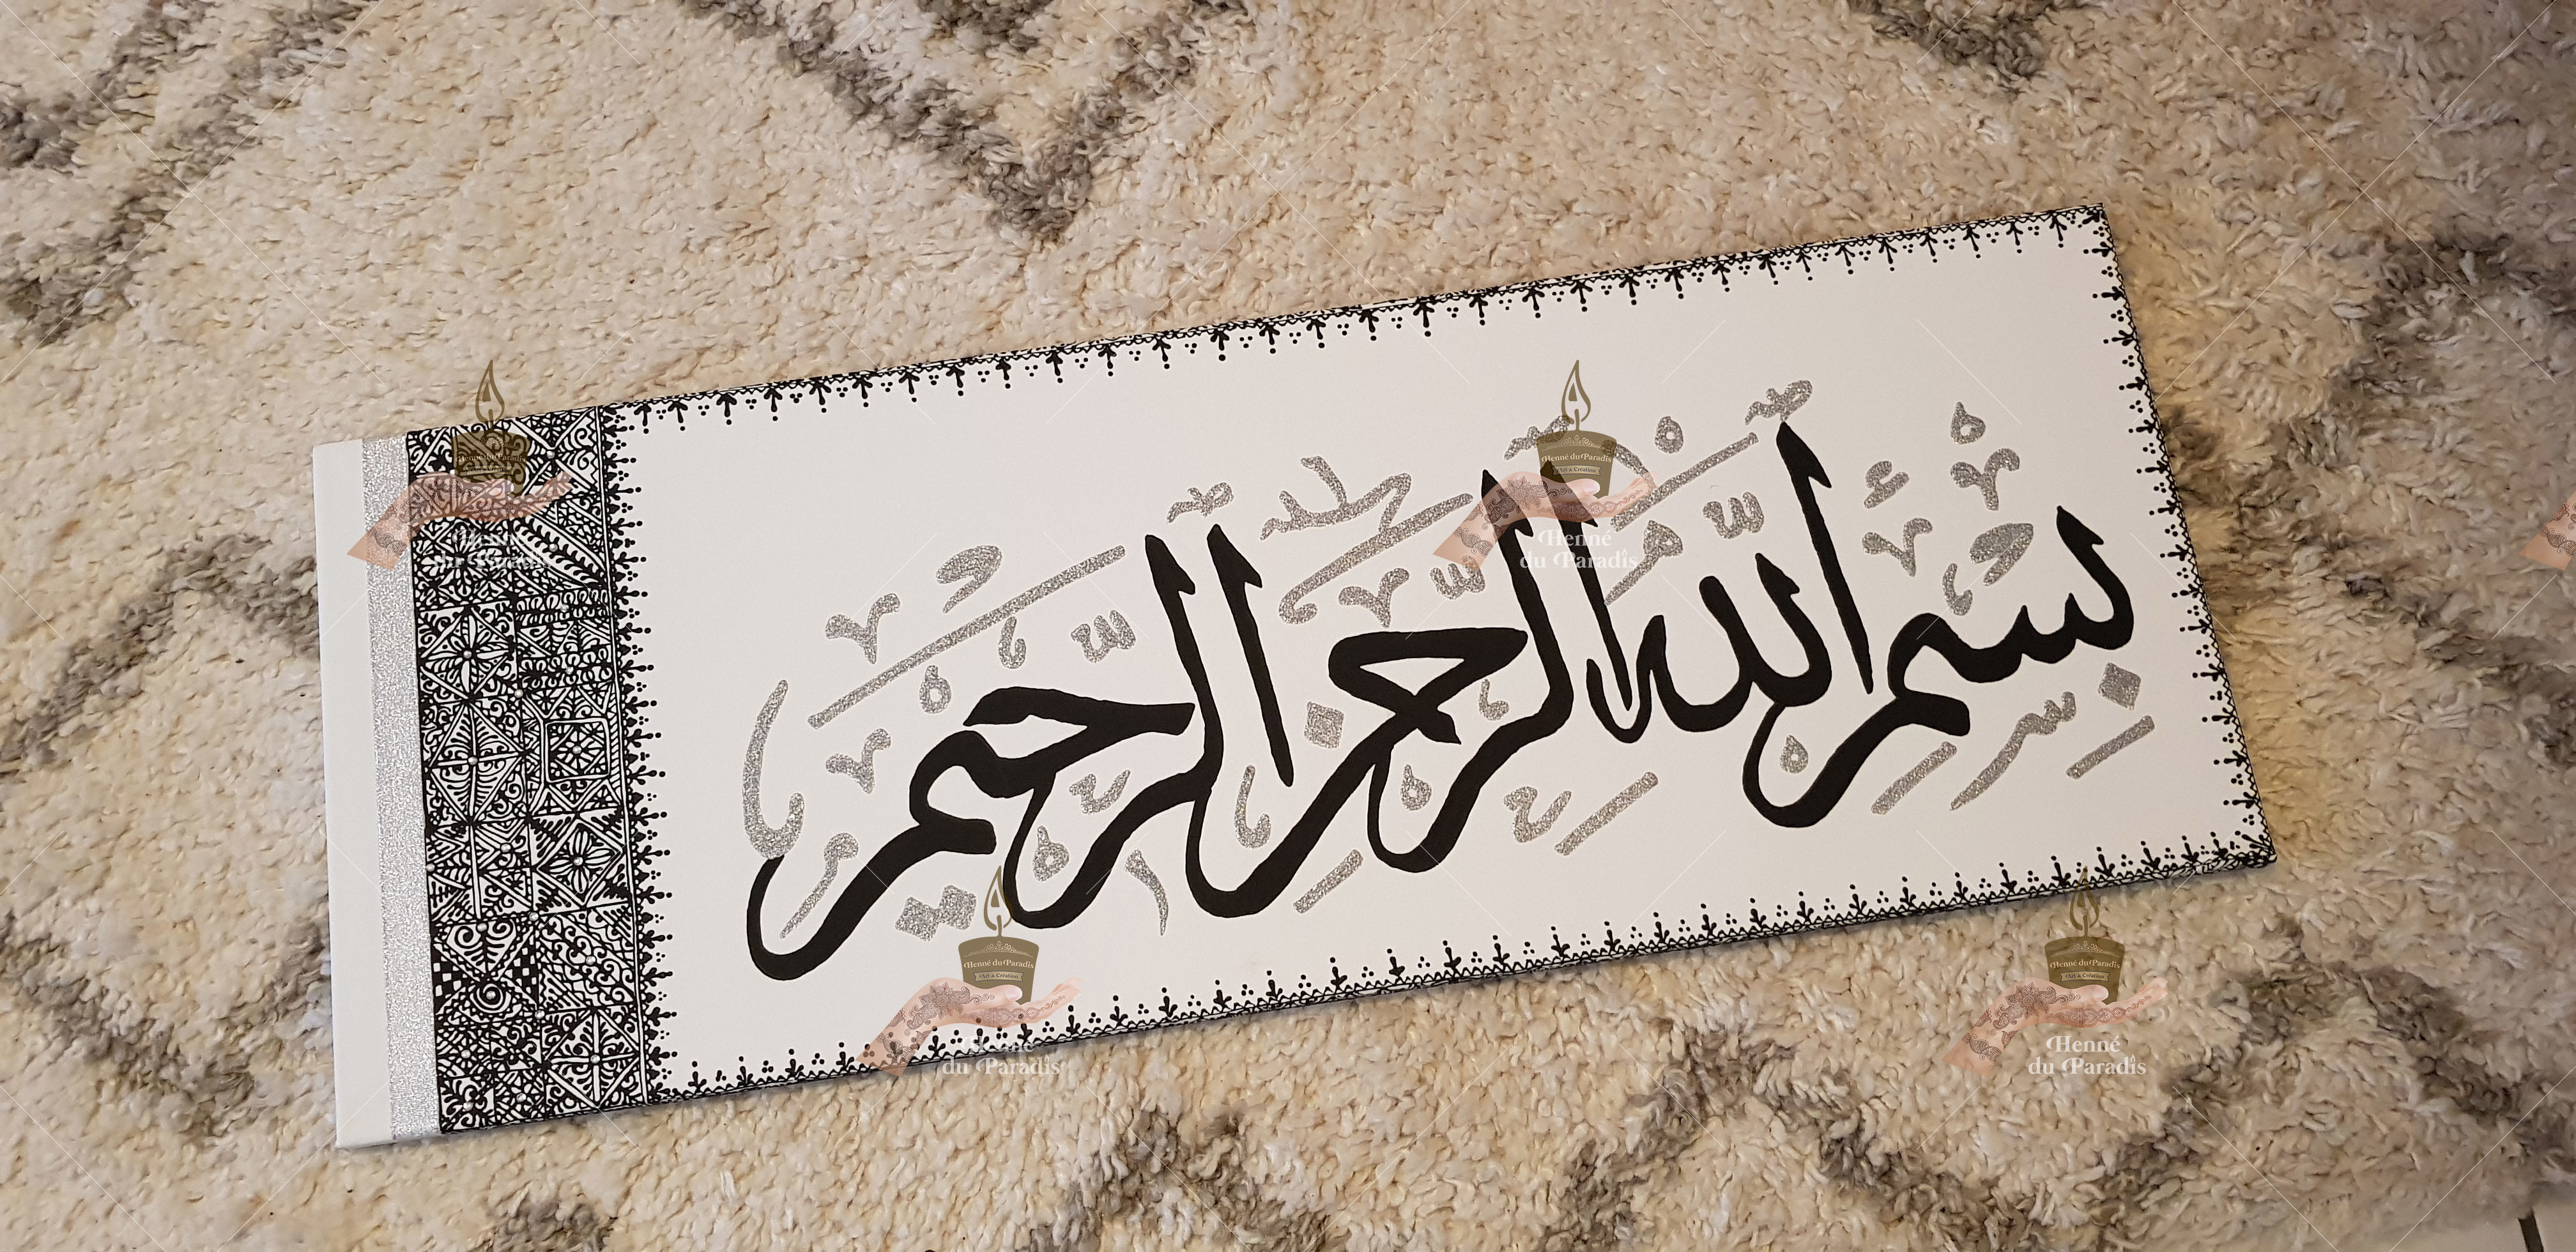 بِسْمِ اللّٰهِ الرَّحْمٰنِ الرَّحِيمِ
Henné du Paradis
Art & Création
Henné
du Paradis
Henné du Paradis
Art & Création
Henné
du Paradis
Henné du Paradis
Art & Création
Henné
du Paradis
Henné du Paradis
Art & Création
Henné
du Paradis